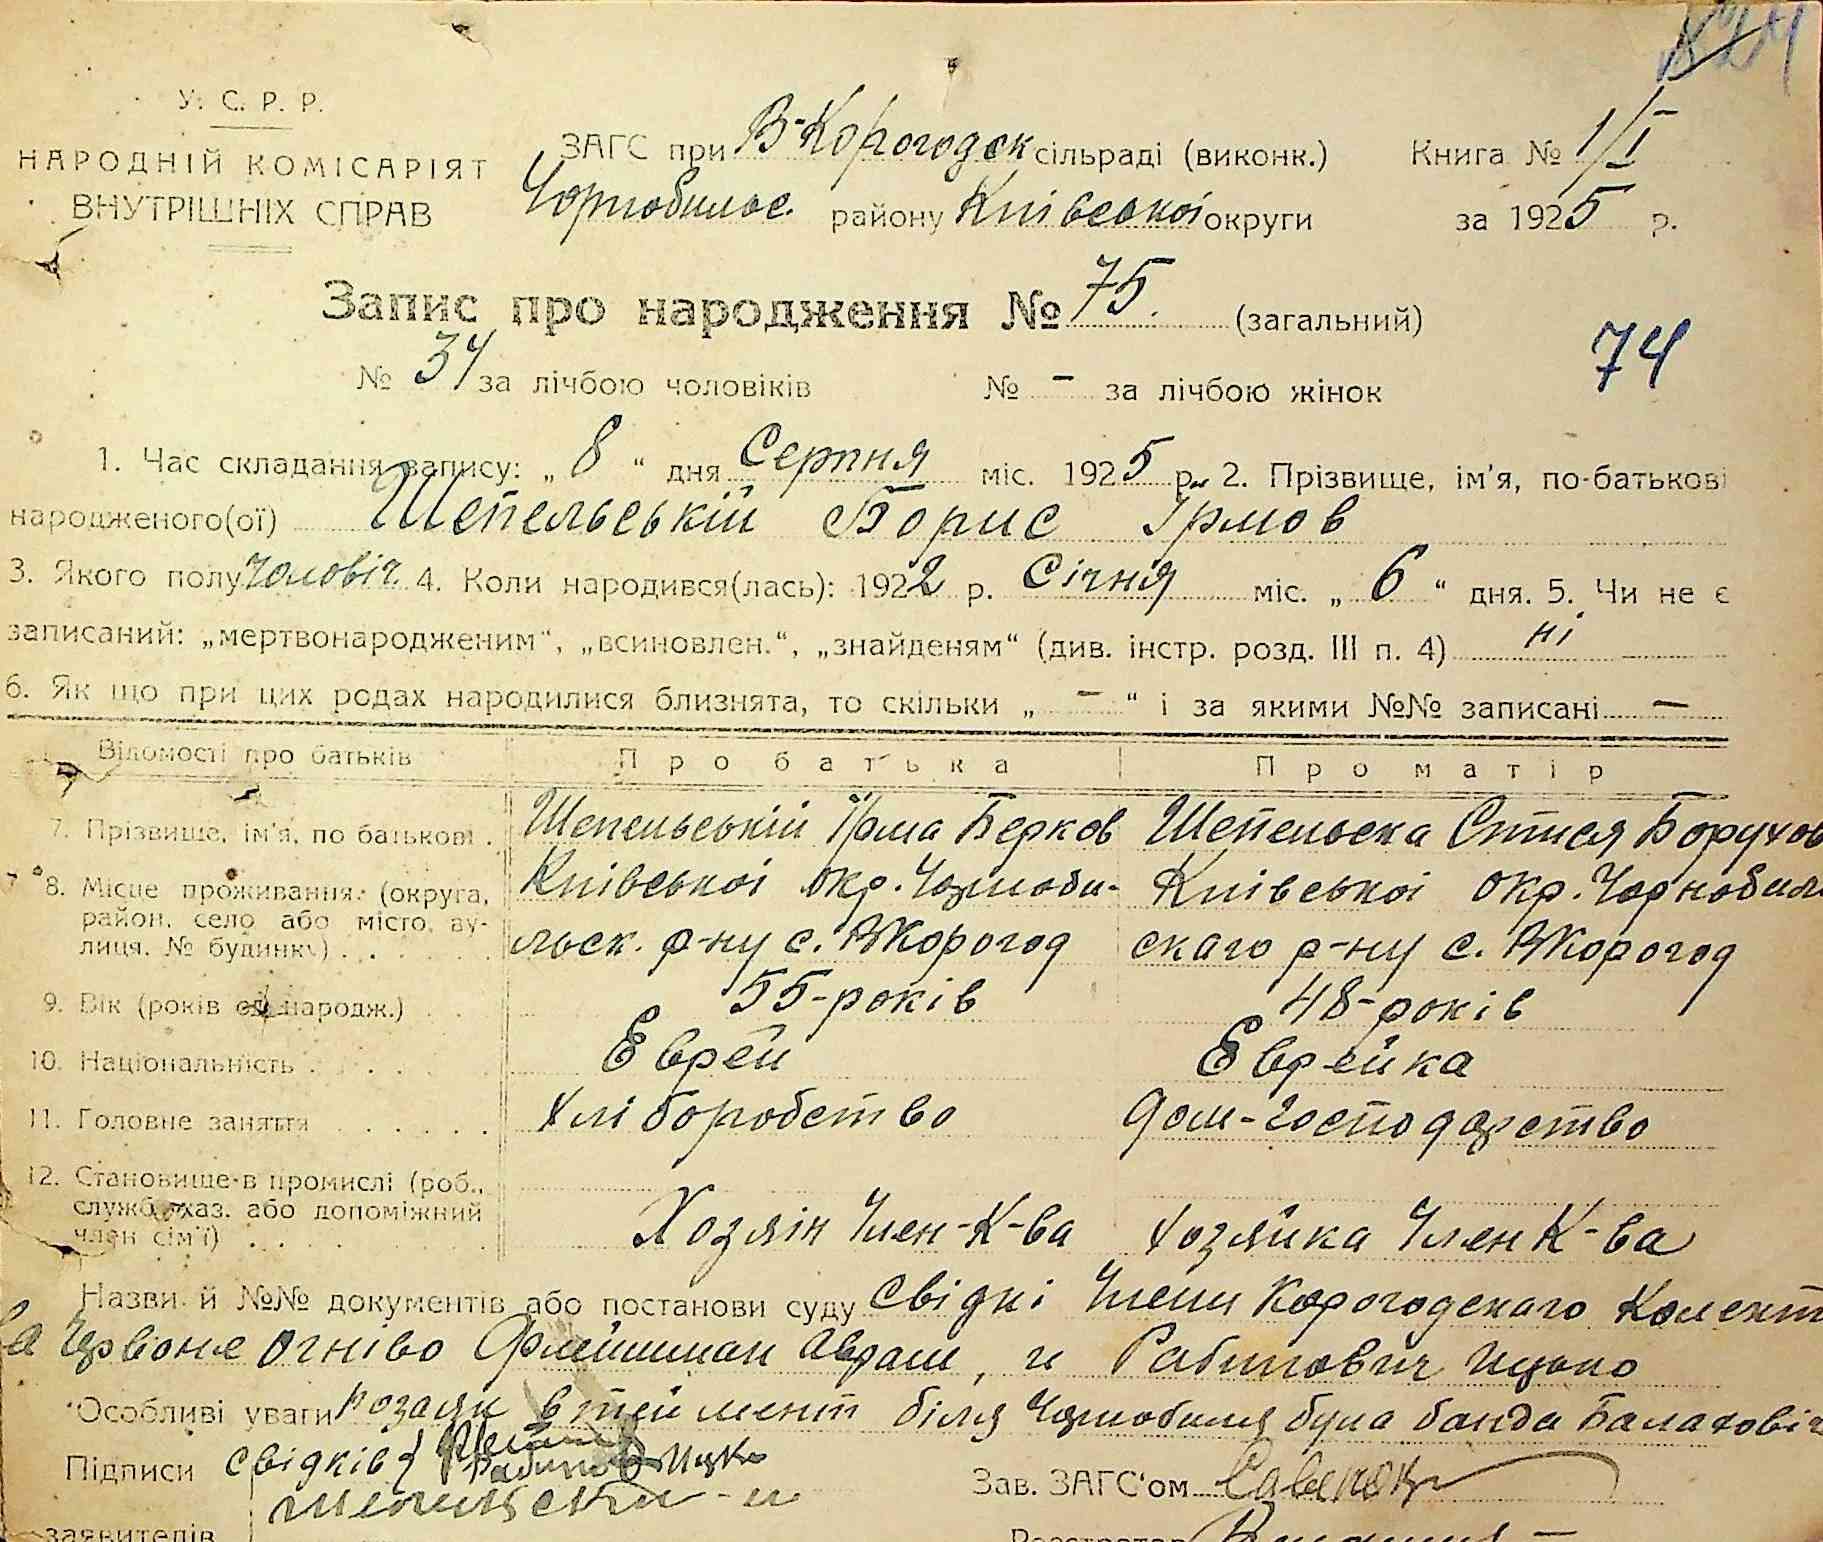 У. С. Р. Р.
НАРОДНІЙ КОМІСАРІЯТ
ВНУТРІШНІХ СПРАВ
ЗАГС при В-Корогодск сільраді (виконк.) Книга № 1/I
Чорнобильс. району Київської округи за 1925 р.
Запис про народження № 75. (загальний)
74
№ 34 за лічбою чоловіків № - за лічбою жінок
1. Час складання запису: „8“ дня Серпня міс. 1925 р. 2. Прізвище, ім'я, по-батькові
народженого(ої) Шепельській Борис Ірмов
3. Якого полу чоловіч. 4. Коли народився(лась): 1922 р. Січня міс. „6“ дня. 5. Чи не є
записаний: „мертвонародженим“, „всиновлен.“, „знайденям“ (див. інстр. розд. III п. 4) ні
6. Як що при цих родах народилися близнята, то скільки „ - “ і за якими №№ записані -
Відомості про батьків Про батька Про матір
7. Прізвище, ім'я, по батькові . Шепельській Ірма Берков Шепельска Борухов
8. Місце проживання: (округа, район, село або місто, ву-лиця, № будинку) . . . . .
Київської окр. Чорноби- Київської окр. Чорнобил
льск. р-ну с. ВКорогод скаго р-ну с. ВКорогод
9. Вік (років од народж.) . . 55-років 48-років
10. Національність . . . . . Еврей Еврейка
11. Головне заняття . . . . . Хліборобство Дом-господарство
12. Становище в промислі (роб., служб., хаз. або допоміжний член сім'ї) . . . . .
Хозяін Член-К-ва Хозяйка Член К-ва
Назви й №№ документів або постанови суду Свідкі Члени Корогодскаго Колект
ва Червоне Огніво Флейшман Аврам, и Рабинович Ицько
Особливі уваги в тей мент біля Чорнобиля була банда Балаховіч
Підписи свідків { Ицко
Зав. ЗАГС'ом
заявителів